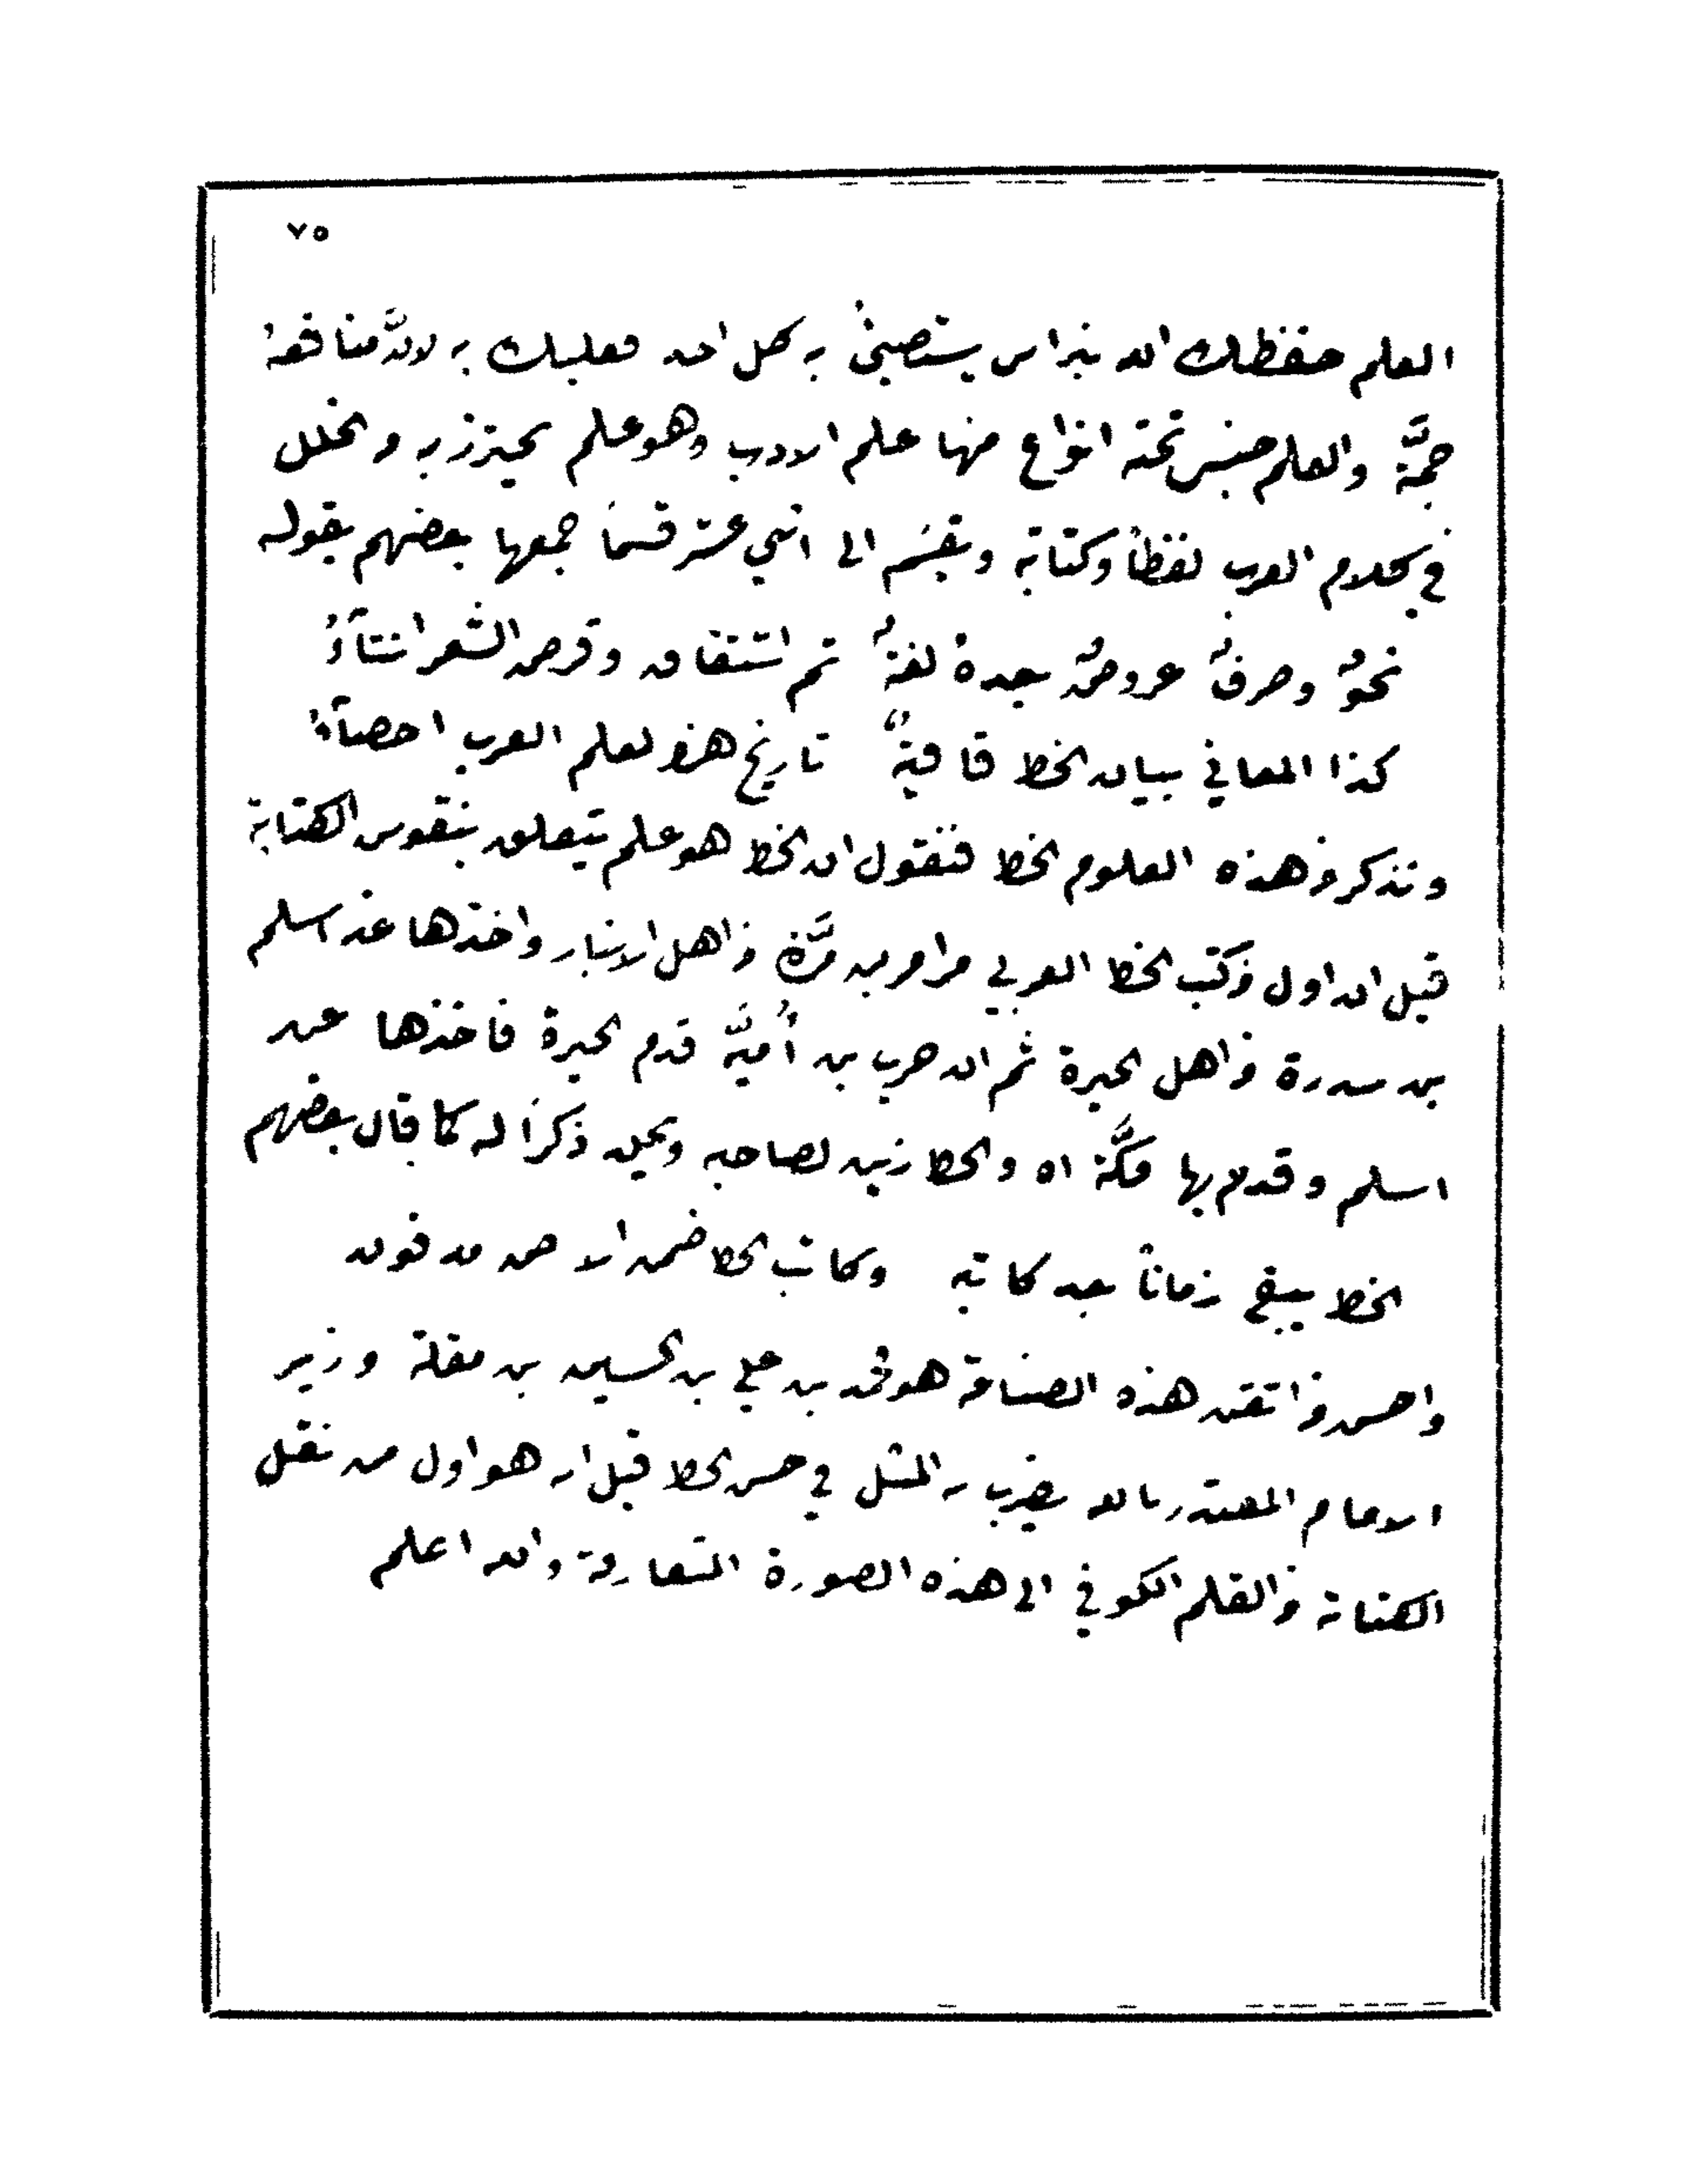 ٧٥
العلم حفظك الله نبراس يستضيئُ به كل احد فعليك به لانَّ منافعهُ
جمَّة والعلم جنس تحته انواع منها علم الادب وهو علم يحترز به من الخلل
في كلام العرب لفظاً وكتابة وينقسم الى اثني عشر قسماً جمعها بعضهم بقوله
نحوٌ وصرفٌ عروضٌ بعدهُ لغةٌ ثم اشتقاق وقرض الشعر انشآءُ
كذا المعاني بيان الخط قافيةٌ تاريخ هذا لعلم العرب احصآءُ
ونذكر من هذه العلوم الخط فنقول ان الخط هو علم يتعلق بنقوس الكتابة
قيل ان اول من كتب الخط العربي مرامر بن مرَّة من اهل الانبار واخذها عنه اسلم
بن سدرة من اهل الحيرة ثم ان حرب بن أُميَّة قدم الحيرة فاخذها عن
اسلم وقدم بها مكَّة اه والخط زين لصاحبه ذكراً له كما قال بعضهم
الخط يبقى زماناً بعد كاتبه وكاتب الخط ضمن الارض مدفون
واحسن من اتقن هذه الصناعة هو محمد بن علي بن الحسين بن مقلة وزير
الامام المقتدر بالله يضرب به المثل في حسن الخط قيل انه هو اول من نقل
الكتابة من القلم الكوفي الى هذه الصورة المتعارفة والله اعلم